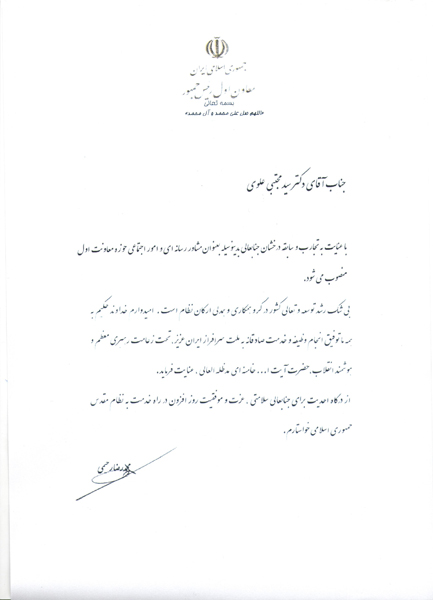 جمهوری اسلامی ایران
معاون اول رئیس جمهور
بسمه تعالی
«اللهم صل علی محمد و آل محمد»
جناب آقای دکتر سید مجتبی علوی
با عنایت به تجارب و سابقه درخشان جنابعالی بدینوسیله بعنوان مشاور رسانه ای و امور اجتماعی حوزه معاونت اول
منصوب می شوید.
بی شک رشد توسعه و تعالی کشور در گرو همکاری و همدلی ارکان نظام است. امیدوارم خداوند حکیم به
همه ما توفیق انجام وظیفه و خدمت صادقانه به ملت سرافراز ایران عزیز، تحت زعامت رهبری معظم و
هوشمند انقلاب، حضرت آیت ا... خامنه ای مدظله العالی، عنایت فرماید.
از درگاه احدیت برای جنابعالی سلامتی، عزت و موفقیت روز افزون در راه خدمت به نظام مقدس
جمهوری اسلامی خواستارم.
محمدرضا رحیمی